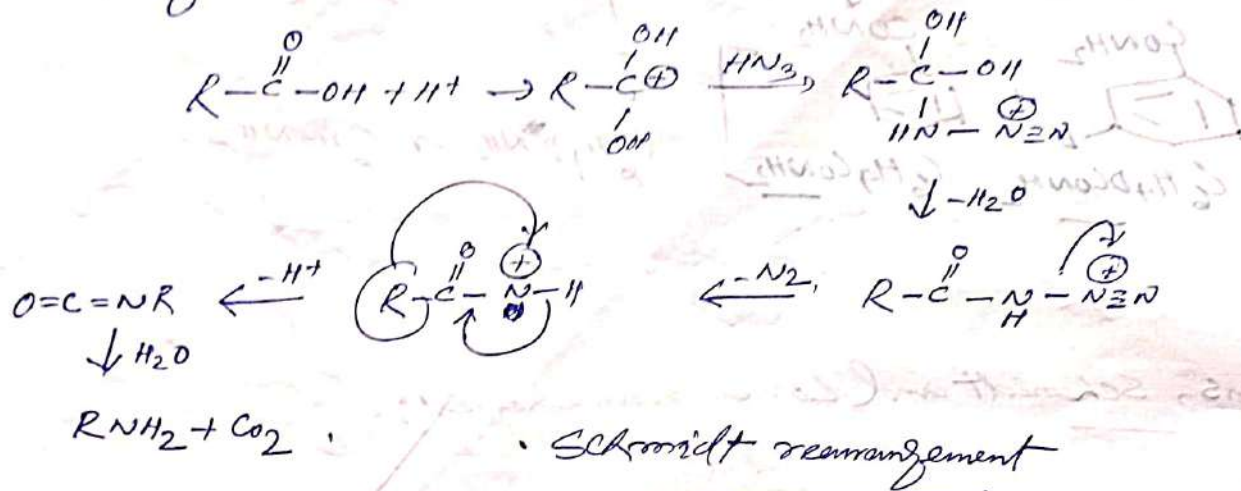 R-C(=O)-OH + H+ → R-C⊕(OH)(OH) —HN3→ R-C(OH)(-OH)-HN-N⊕≡N
↓ -H2O
O=C=NR ←-H+ R-C(=O)-N⊕-H ←-N2. R-C(=O)-NH-N⊕≡N
↓ H2O
RNH2 + CO2 . . Schmidt rearrangement